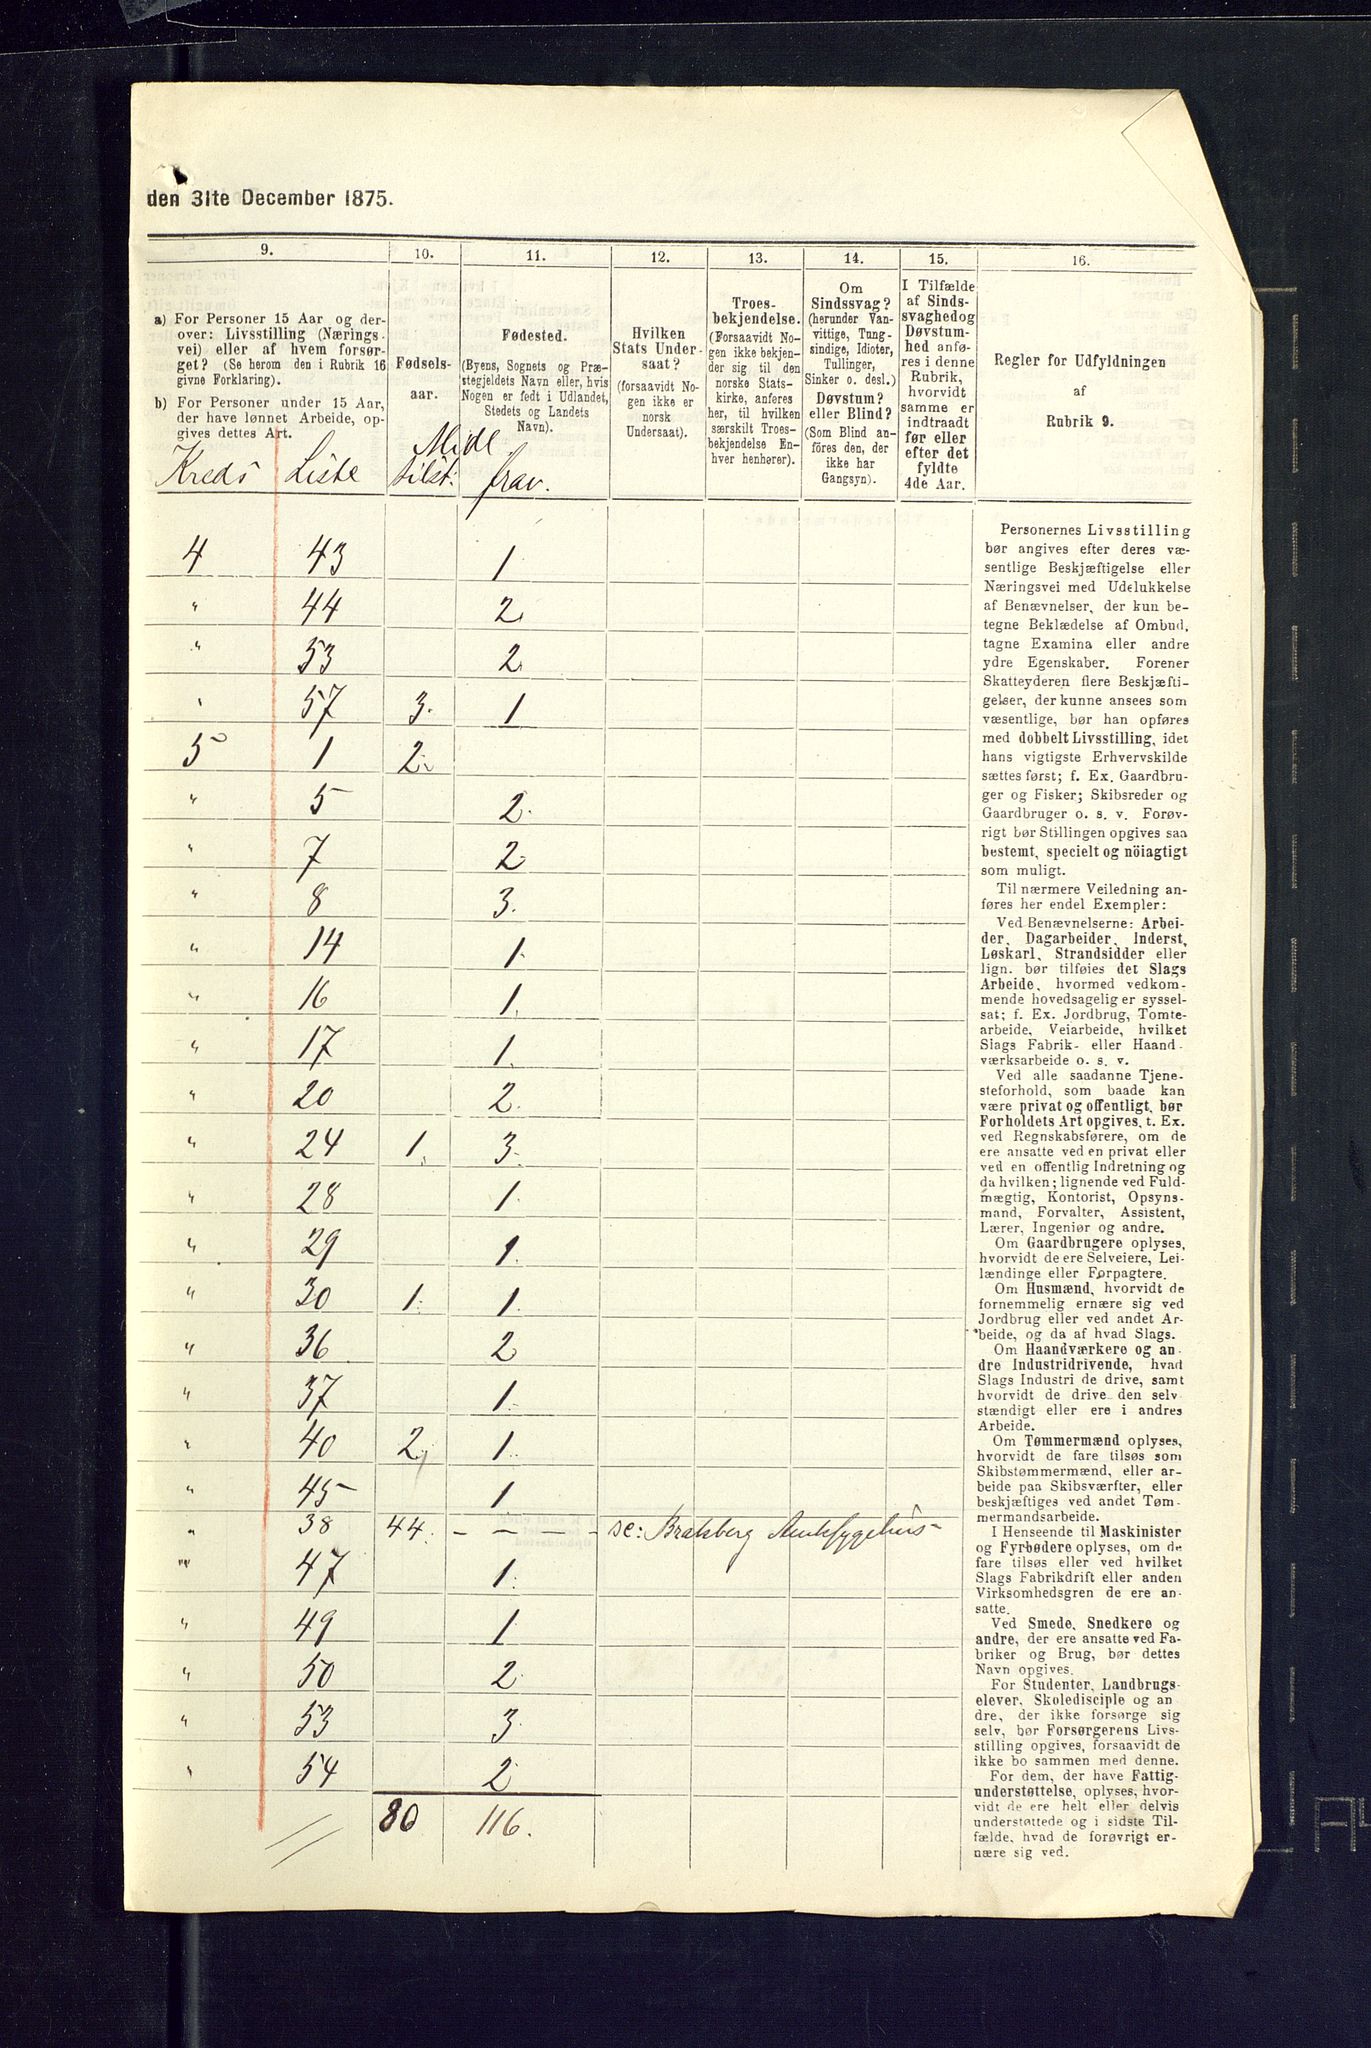 den 31te December 1875.
9. 10. 11. 12. 13. 14. 15. 16.
a) For Personer 15 Aar og der-
over: Livsstilling (Nærings-
vei) eller af hvem forsør-
get? (Se herom den i Rubrik 16
givne Forklaring).
b) For Personer under 15 Aar,
der have lønnet Arbeide, op-
gives dettes Art.
Fødsels-
aar.
Fødested.
(Byens, Sognets og Præ-
stegjeldets Navn eller, hvis
Nogen er født i Udlandet,
Stedets og Landets
Navn).
Hvilken
Stats Under-
saat?
(forsaavidt No-
gen ikke er
norsk
Undersaat).
Troes-
bekjendelse.
(Forsaavidt No-
gen ikke bekjen-
der sig til den
norske Stats-
kirke, anføres
her, til hvilken
særskilt Troes-
bekjendelse En-
hver henhører).
Om
Sindssvag?
(herunder Van-
vittige, Tung-
sindige, Idioter,
Tullinger,
Sinker o. desl.)
Døvstum?
eller Blind?
(Som Blind an-
föres den, der
ikke har
Gangsyn).
I Tilfælde
af Sinds-
svaghedog
Døvstum-
hed anfø-
res i denne
Rubrik,
hvorvidt
samme er
indtraadt
før eller
efter det
fyldte
4de Aar.
Regler for Udfyldningen
af
Rubrik 9.
Midl.
Kreds Liste tilst. frav.
4 43 1
" 44 2
" 53 2
" 57 3. 1
5 1 2.
" 5 2.
" 7 2
" 8 3.
" 14 1.
" 16 1.
" 17 1.
" 20 2.
" 24 1. 3.
" 28 1.
" 29 1.
" 30 1. 1.
" 36 2
" 37 1.
" 40 2. 1.
" 45 1
" 38 44. - - - - sc: Bratsberg Amtssygehus
"" 47 1.
" 49 1.
" 50 2.
" 53 3.
" 54 2
80 116.
Personernes Livsstilling
bør angives efter deres væ-
sentlige Beskjæftigelse eller
Næringsvei med Udelukkelse
af Benævnelser, der kun be-
tegne Beklædelse af Ombud,
tagne Examina eller andre
ydre Egenskaber. Forener
Skatteyderen flere Beskjæfti-
gelser, der kunne ansees som
væsentlige, bør han opføres
med dobbelt Livsstilling, idet
hans vigtigste Erhvervskilde
sættes først; f. Ex. Gaardbru-
ger og Fisker; Skibsreder og
Gaardbruger o. s. v. Forøv-
rigt bør Stillingen opgives saa
bestemt, specielt og nöiagtigt
som muligt.
Til nærmere Veiledning an-
føres her endel Exempler:
Ved Benævnelserne: Arbei-
der, Dagarbeider, Inderst,
Løskarl, Strandsidder eller
lign. bør tilføies det Slags
Arbeide, hvormed vedkom-
mende hovedsagelig er syssel-
sat; f. Ex. Jordbrug, Tomte-
arbeide, Veiarbeide, hvilket
Slags Fabrik- eller Haand-
værksarbeide o. s. v.
Ved alle saadanne Tjene-
steforhold, som baade kan
være privat og offentligt, bør
Forholdets Art opgives, t. Ex.
ved Regnskabsførere, om de
ere ansatte ved en privat eller
ved en offentlig Indretning og
da hvilken; lignende ved Fuld-
mægtig, Kontorist, Opsyns-
mand, Forvalter, Assistent,
Lærer, Ingeniør og andre.
Om Gaardbrugere oplyses,
hvorvidt de ere Selveiere, Lei-
lændinge eller Forpagtere.
Om Husmænd, hvorvidt de
fornemmelig ernære sig ved
Jordbrug eller ved andet Ar-
beide, og da af hvad Slags.
Om Haandværkere og an-
dre Industridrivende, hvad
Slags Industri de drive, samt
hvorvidt de drive den selv-
stændigt eller ere i andres
Arbeide.
Om Tømmermænd oplyses,
hvorvidt de fare tilsøs som
Skibstømmermænd, eller ar-
beide paa Skibsværfter, eller
beskjæftiges ved andet Tøm-
mermandsarbeide.
I Henseende til Maskinister
og Fyrbødere oplyses, om de
fare tilsøs eller ved hvilket
Slags Fabrikdrift eller anden
Virksomhedsgren de ere an-
satte.
Ved Smede, Snedkere og
andre, der ere ansatte ved Fa-
briker og Brug, bør dettes
Navn opgives.
For Studenter, Landbrugs-
elever, Skoledisciple og an-
dre, der ikke forsørge sig
selv, bør Forsørgerens Livs-
stilling opgives, forsaavidt de
ikke bo sammen med denne.
For dem, der have Fattig-
understøttelse, oplyses, hvor-
vidt de ere helt eller delvis
understøttede og i sidste Til-
fælde, hvad de forøvrigt er-
nære sig ved.